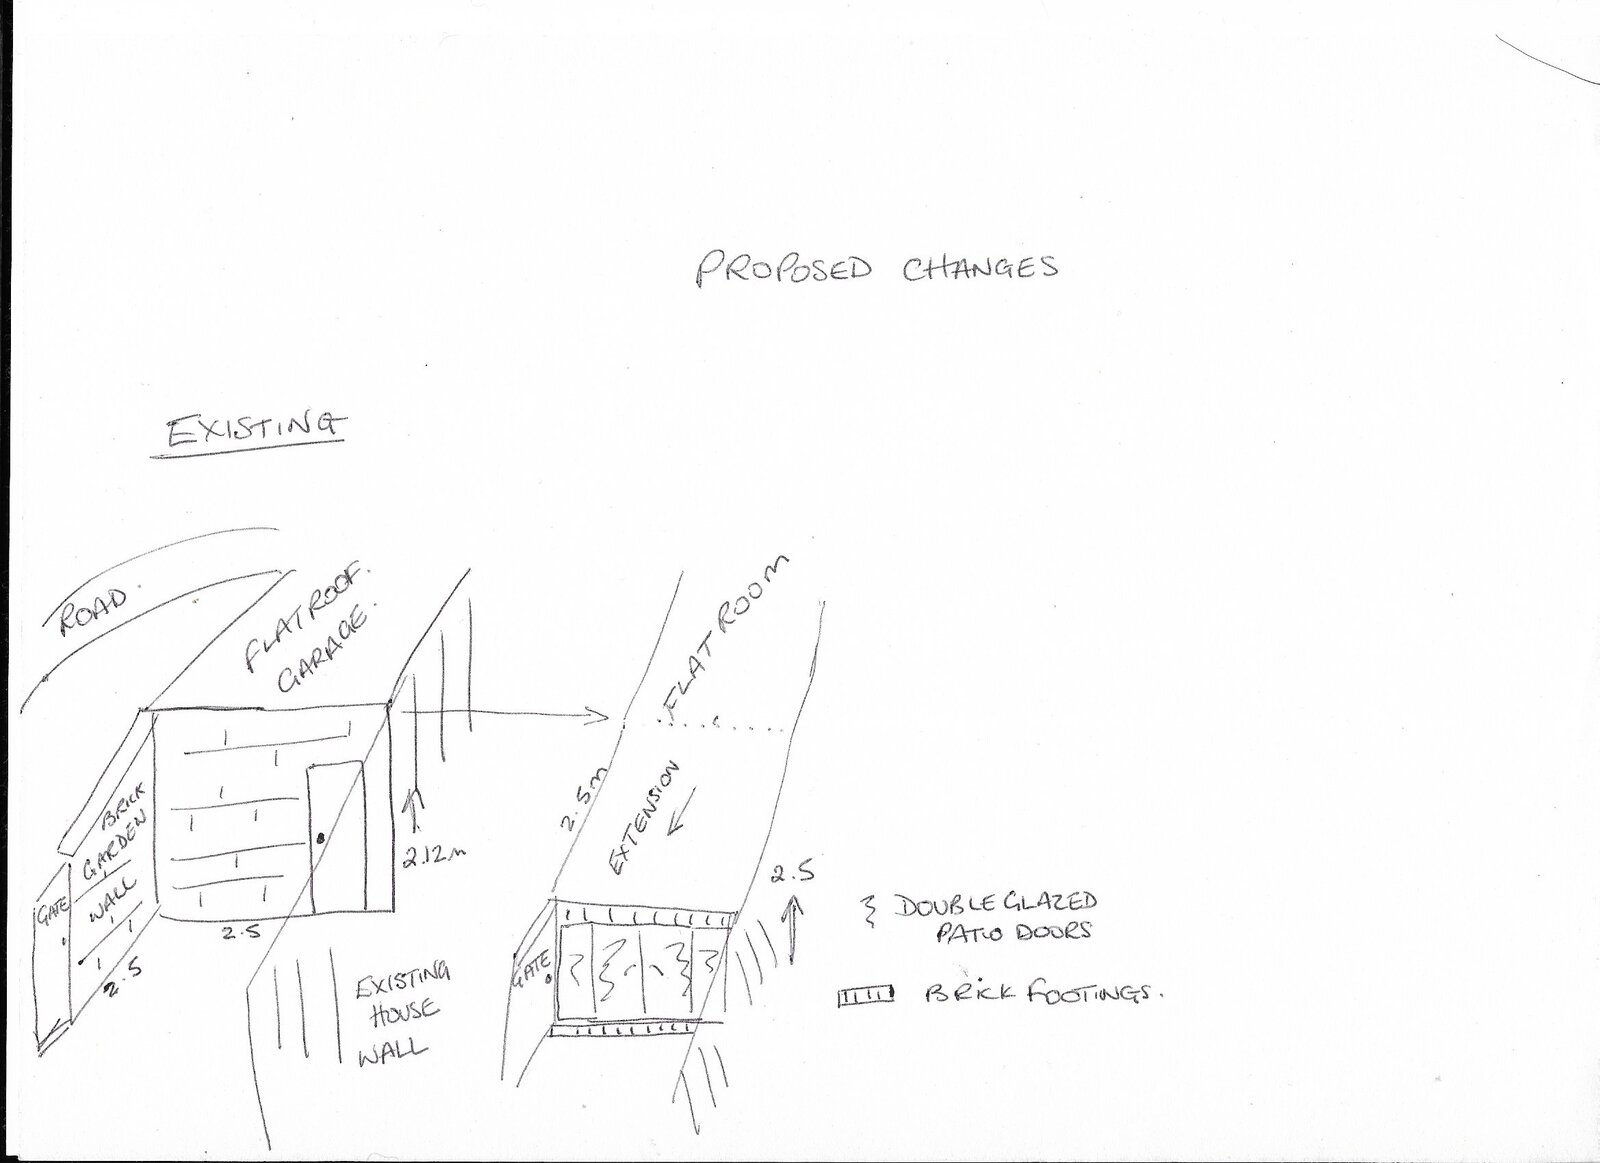 PROPOSED CHANGES
EXISTING
ROAD.
FLAT ROOF.
GARAGE.
BRICK
GARDEN
WALL
GATE
2.5
2.5
2.12m
EXISTING
HOUSE
WALL
FLAT ROOM
2.5m
EXTENSION
GATE
2.5
DOUBLE GLAZED
PATIO DOORS
BRICK FOOTINGS.